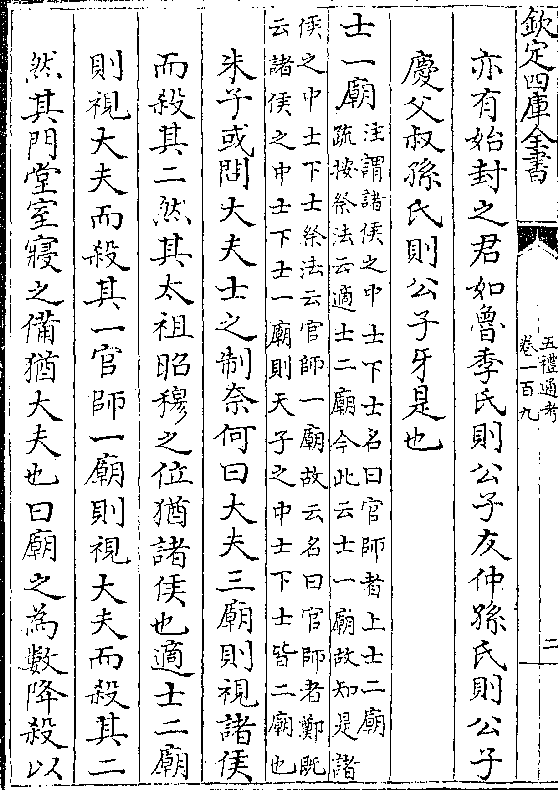 欽定四庫全書
五禮通考
卷一百九
二
亦有始封之君如魯季氏則公子友仲孫氏則公子
慶父叔孫氏則公子牙是也
士一廟
注謂諸侯之中士下士名曰官師者上士二廟
疏按祭法云適士二廟今此云士一廟故知是諸
侯之中士下士祭法云官師一廟故云名曰官師者鄭既
云諸侯之中士下士一廟則天子之中士下士皆二廟也
朱子或問大夫士之制奈何曰大夫三廟則視諸侯
而殺其二然其太祖昭穆之位猶諸侯也適士二廟
則視大夫而殺其一官師一廟則視大夫而殺其二
然其門堂室寢之備猶大夫也曰廟之為數降殺以